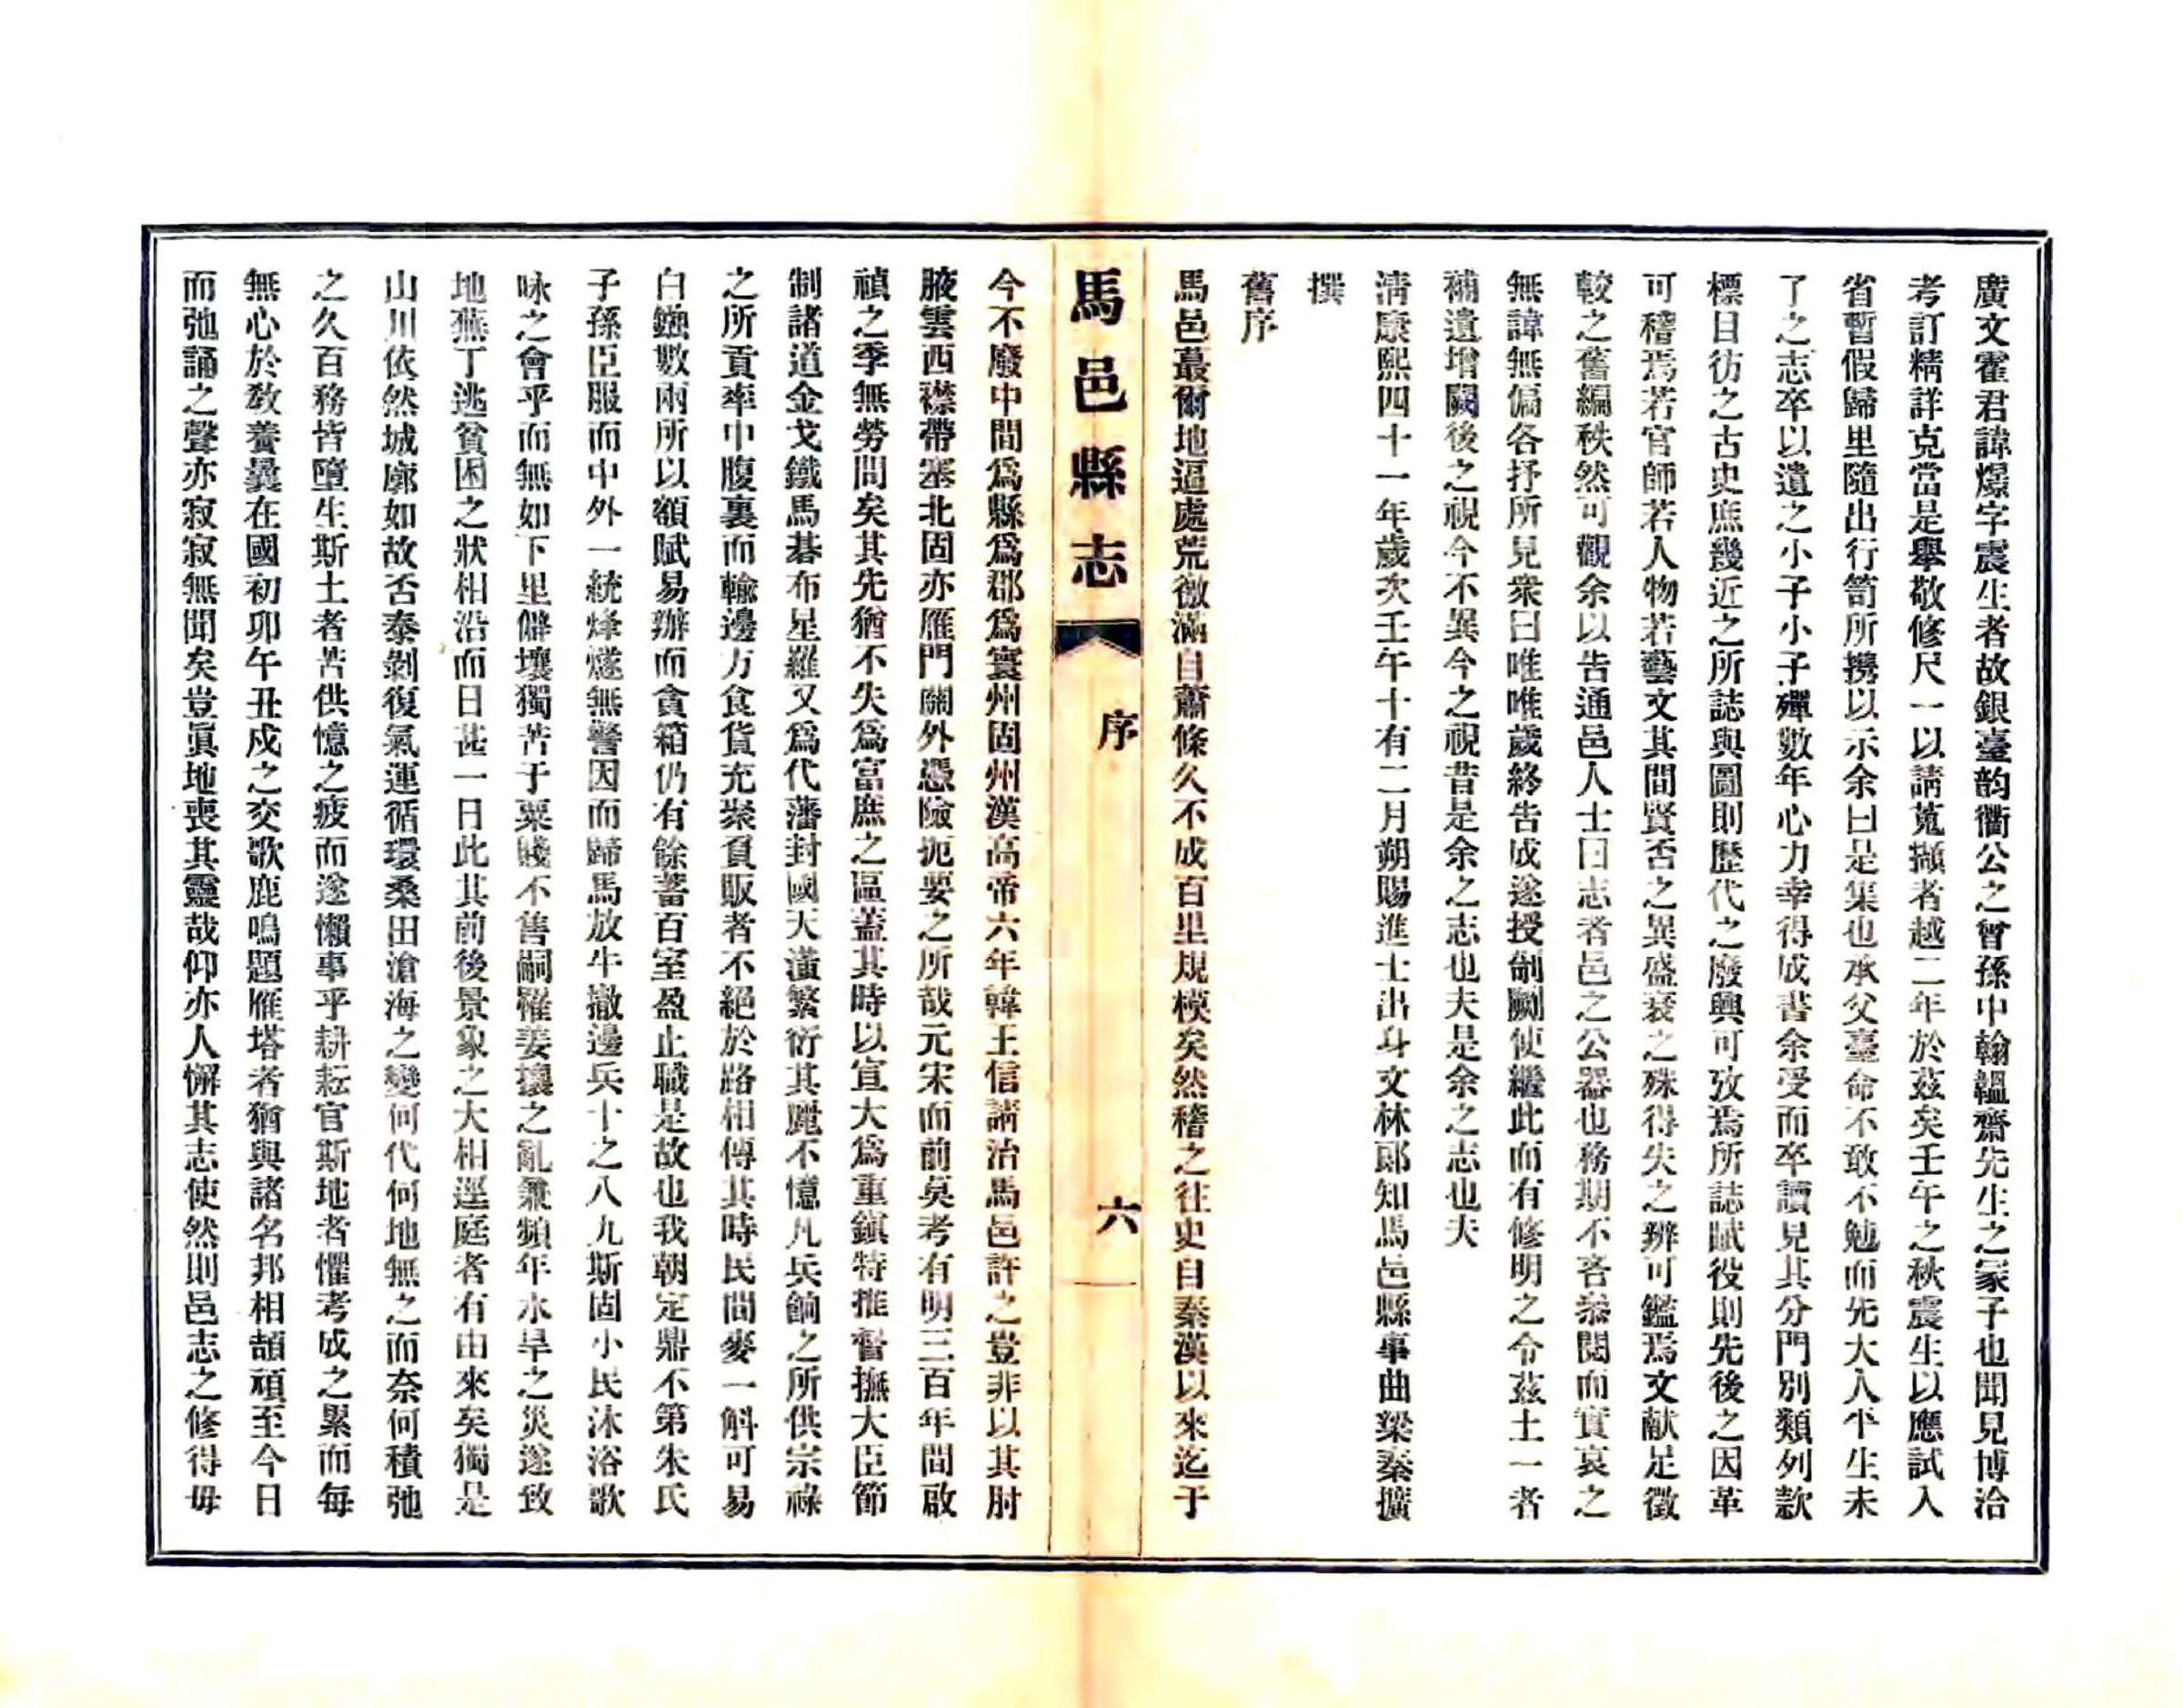 廣文霍君諱爆字震生者故銀臺韵衢公之曾孫中翰韞齋先生之冢子也聞見博洽
考訂精詳克當是舉敬修尺一以請蒐擷者越二年於茲矣壬午之秋震生以應試入
省暫假歸里隨出行笥所携以示余曰是集也承父臺命不敢不勉而先大人平生未
了之志卒以遺之小子小子殫數年心力幸得成書余受而卒讀見其分門別類列款
標目彷之古史庶幾近之所誌與圖則歷代之廢興可攷焉所誌賦役則先後之因革
可稽焉若官師若人物若藝文其間賢否之異盛衰之殊得失之辨可鑑焉文献足徵
較之舊編秩然可觀余以告通邑人士曰志者邑之公器也務期不吝叅閱而實哀之
無諱無偏各抒所見衆曰唯唯歲終告成遂授剞劂使繼此而有修明之令茲土一者
補遺增闕後之視今不異今之視昔是余之志也夫是余之志也夫
清康熙四十一年歲次壬午十有二月朔賜進士出身文林郎知馬邑縣事曲梁秦擴
撰
舊序
馬邑蕞爾地逼處荒徼滿目蕭條久不成百里規模矣然稽之往史自秦漢以來迄于
馬邑縣志
序
六
今不廢中間爲縣爲郡爲寰州固州漢高帝六年韓王信請治馬邑許之豈非以其肘
腋雲西襟帶塞北固亦雁門關外憑險扼要之所哉元宋而前矣考有明三百年間啟
禎之季無勞問矣其先猶不失爲富庶之區蓋其時以宣大爲重鎮特推督撫大臣節
制諸道金戈鐵馬碁布星羅又爲代藩封國天潢繁衍其麗不憶凡兵餉之所供宗祿
之所貢率中腹裏而輸邊方食貨充聚負販者不絕於路相傳其時民間麥一斛可易
白鏹數兩所以額賦易辦而倉箱仍有餘蓄百室盈止職是故也我朝定鼎不第朱氏
子孫臣服而中外一統烽燧無警因而歸馬放牛撤邊兵十之八九斯固小民沐浴歌
咏之會乎而無如下里僻壤獨苦于粟賤不售嗣罹姜瓖之亂兼頻年水旱之災遂致
地蕪丁逃貧困之狀相沿而日甚一日此其前後景象之大相逕庭者有由來矣獨是
山川依然城廓如故否泰剝復氣運循環桑田滄海之變何代何地無之而奈何積弛
之久百務皆墮生斯土者苦供憶之疲而遂懶事乎耕耘官斯地者懼考成之累而每
無心於教養曩在國初卯午丑戍之交歌鹿鳴題雁塔者猶與諸名邦相頡頑至今日
而弛誦之聲亦寂寂無聞矣豈眞地喪其靈哉仰亦人懈其志使然則邑志之修得毋